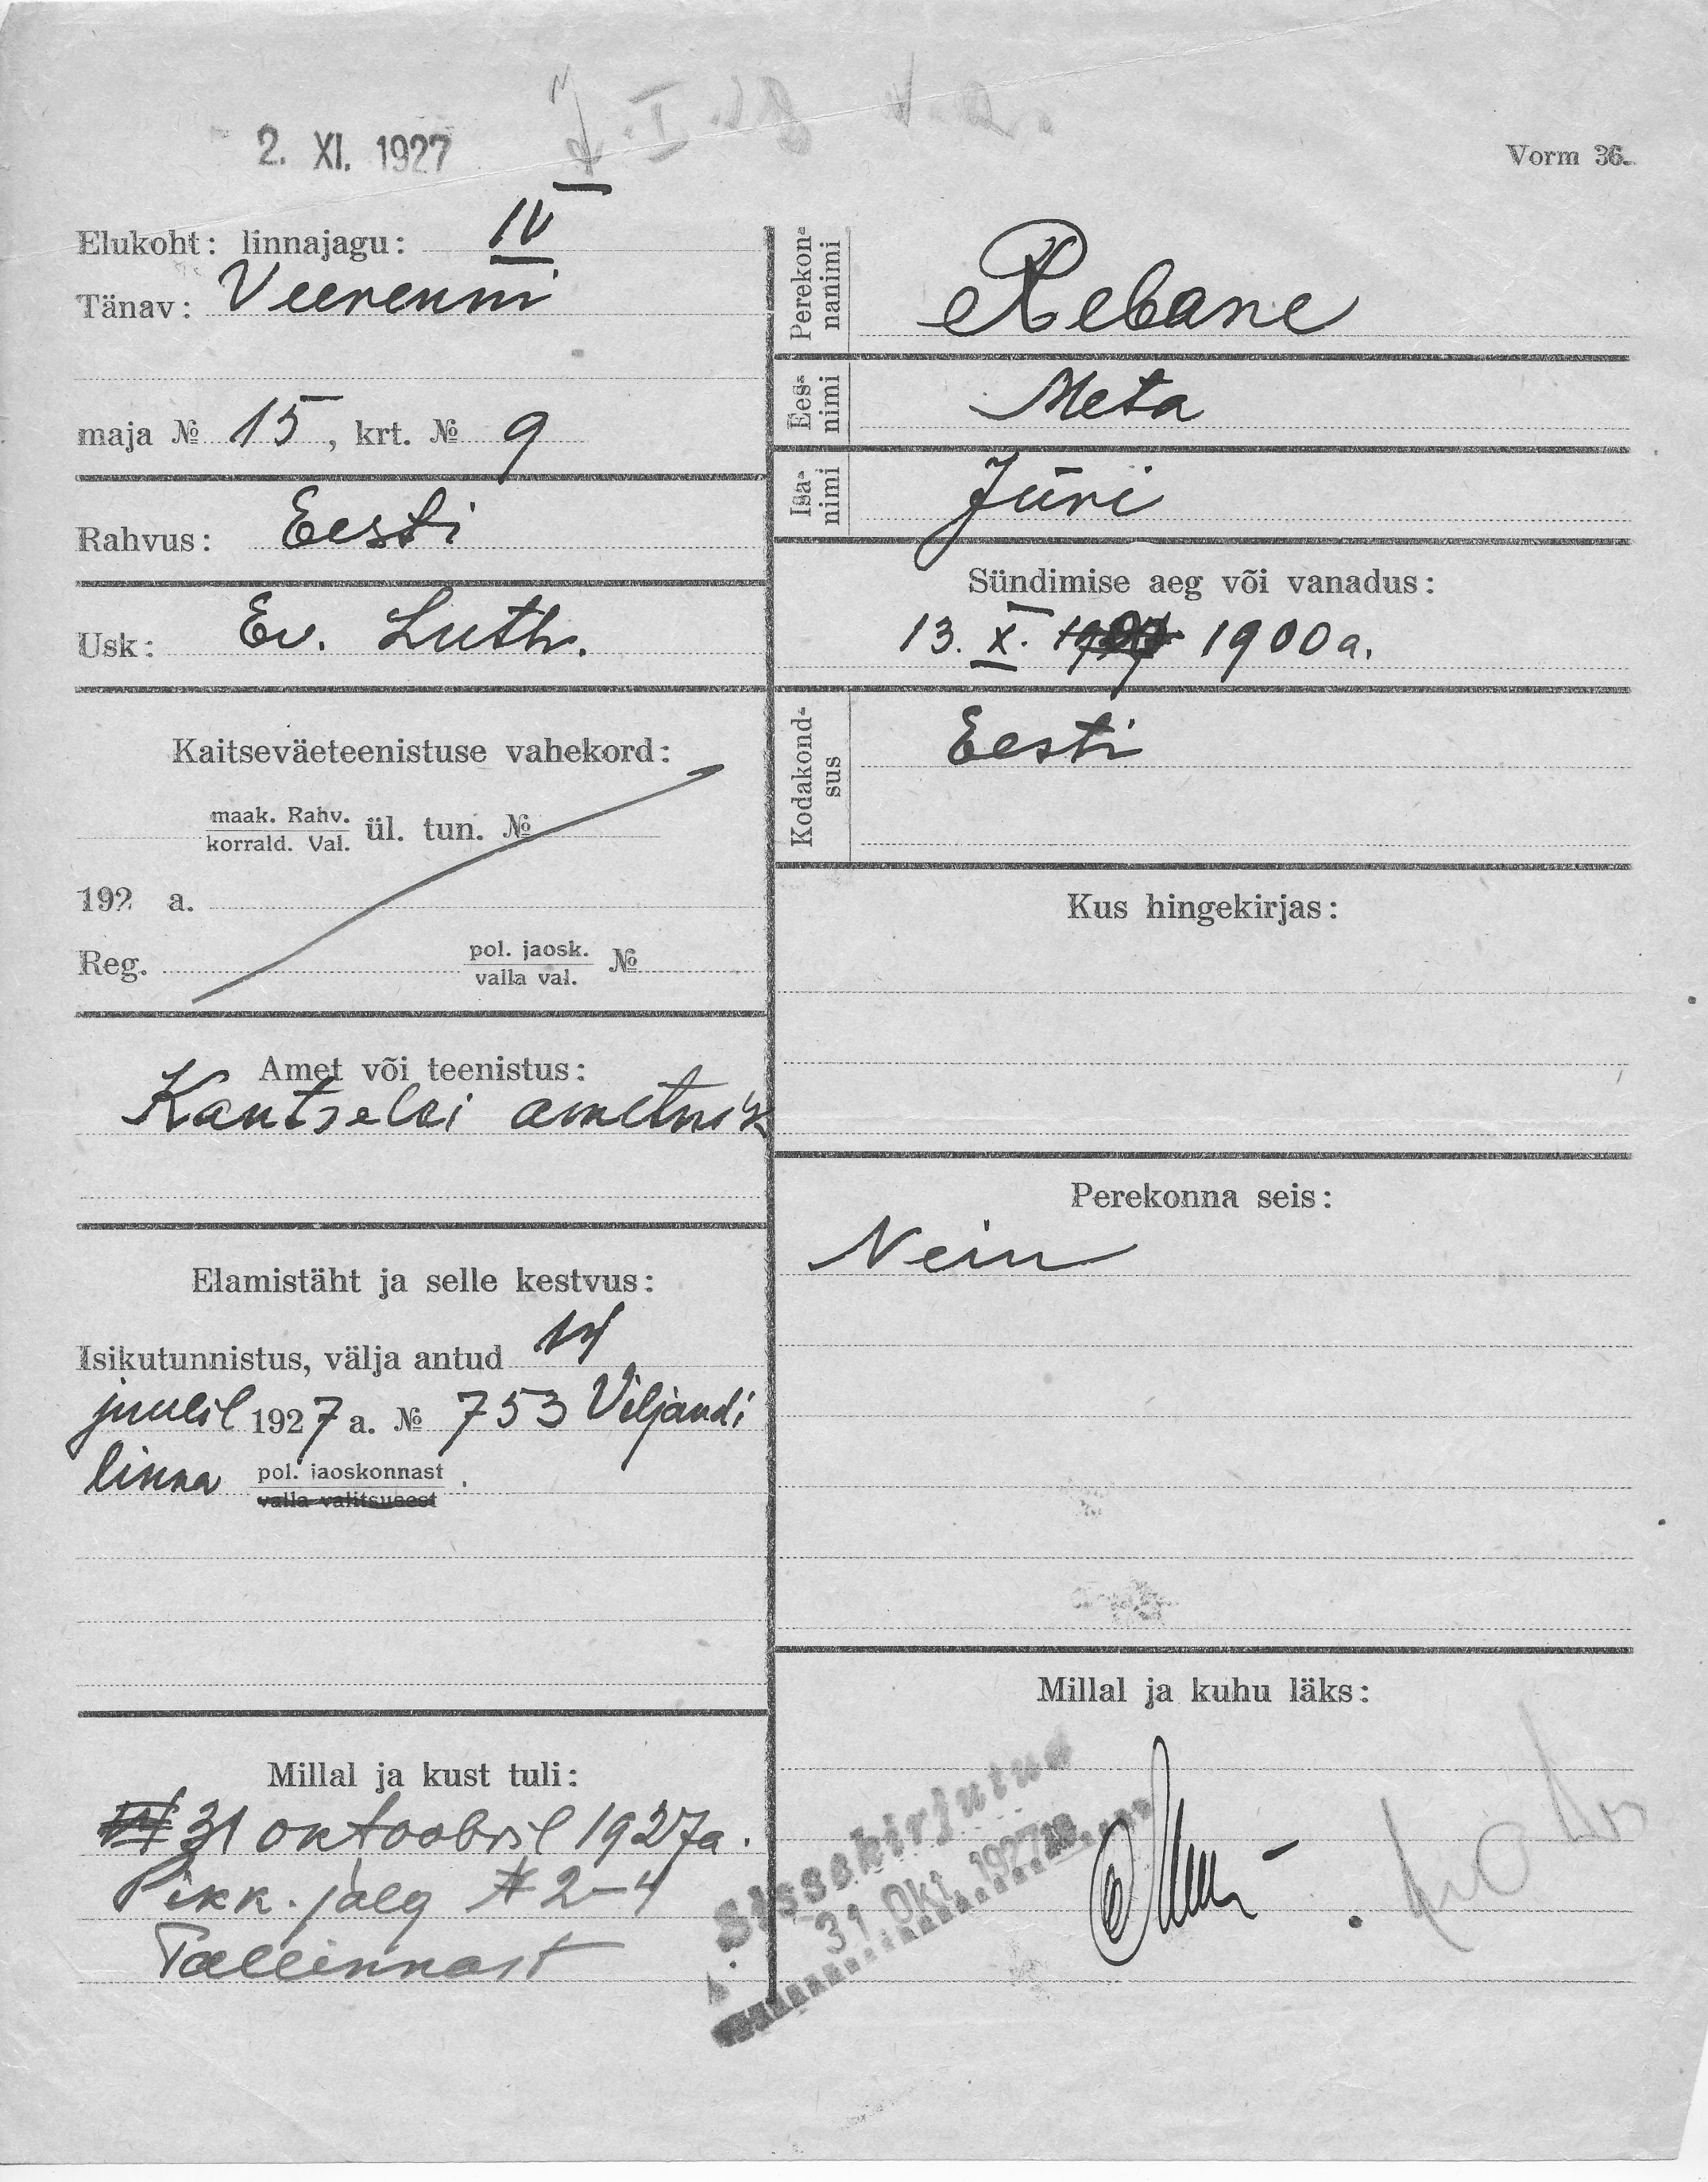 2. XI. 1927
Vorm 36.
Elukoht: linnajagu: IV
Tänav: Veerenni
maja № 15, krt. № 9
Rahvus: Eesti
Usk: Ev. Luth.
Kaitseväeteenistuse vahekord:
maak. Rahv.
korrald. Val. ül. tun. №
192 a.
Reg. pol. jaosk. №
valla val.
Amet või teenistus:
Kantselei ametnik
Elamistäht ja selle kestvus:
Isikutunnistus, välja antud 14
juulil 1927 a. № 753 Viljandi
linna pol. jaoskonnast.
valla valitsusest
Millal ja kust tuli:
31 oktoobril 1927a.
Pikk. jalg # 2-4
Tallinnast
Perekon-
nanimi
Rebane
Ees-
nimi
Meta
Isa-
nimi
Jüri
Sündimise aeg või vanadus:
13. X. 1900a.
Kodakond-
sus
Eesti
Kus hingekirjas:
Perekonna seis:
Nein
Millal ja kuhu läks:
Sissekirjutud
31. Okt. 1927